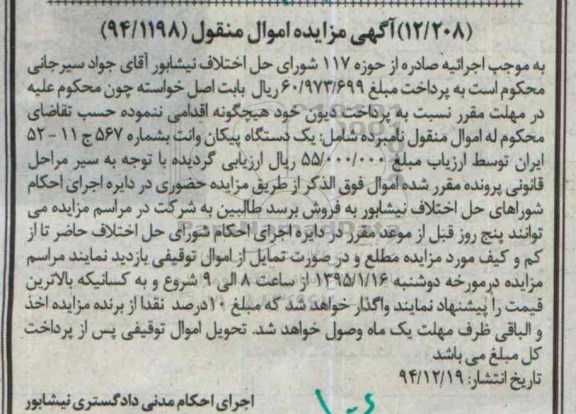 (۱۲/۲۰۸)آگهی مزایده اموال منقول (۹۴/۱۱۹۸)
به موجب اجرائیه صادره از حوزه ۱۱۷ شورای حل اختلاف نیشابور آقای جواد سیرجانی
محکوم است به پرداخت مبلغ ۶۰/۹۷۳/۶۹۹ ریال بابت اصل خواسته چون محکوم علیه
در مهلت مقرر نسبت به پرداخت دیون خود هیچگونه اقدامی ننموده حسب تقاضای
محکوم له اموال منقول نامبرده شامل: یک دستگاه پیکان وانت بشماره ۵۶۷ ج ۱۱ - ۵۲
ایران توسط ارزیاب مبلغ ۵۵/۰۰۰/۰۰۰ ریال ارزیابی گردیده با توجه به سیر مراحل
قانونی پرونده مقرر شده اموال فوق الذکر از طریق مزایده حضوری در دایره اجرای احکام
شوراهای حل اختلاف نیشابور به فروش برسد طالبین به شرکت در مراسم مزایده می
توانند پنج روز قبل از موعد مقرر در دایره اجرای احکام شورای حل اختلاف حاضر تا از
کم و کیف مورد مزایده مطلع و در صورت تمایل از اموال توقیفی بازدید نمایند مراسم
مزایده درمورخه دوشنبه ۱۳۹۵/۱/۱۶ از ساعت ۸ الی ۹ شروع و به کسانیکه بالاترین
قیمت را پیشنهاد نمایند واگذار خواهد شد که مبلغ ۱۰درصد نقدا از برنده مزایده اخذ
و الباقی ظرف مهلت یک ماه وصول خواهد شد. تحویل اموال توقیفی پس از پرداخت
کل مبلغ می باشد
تاریخ انتشار: ۹۴/۱۲/۱۹
اجرای احکام مدنی دادگستری نیشابور